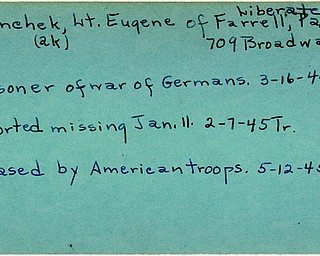 Liberate
nchek, Lt. Eugene of Farrell, Pa
(ak) 709 Broadwa
soner of war of Germans. 3-16-4
orted missing Jan. 11. 2-7-45 Tr.
eased by American troops. 5-12-45